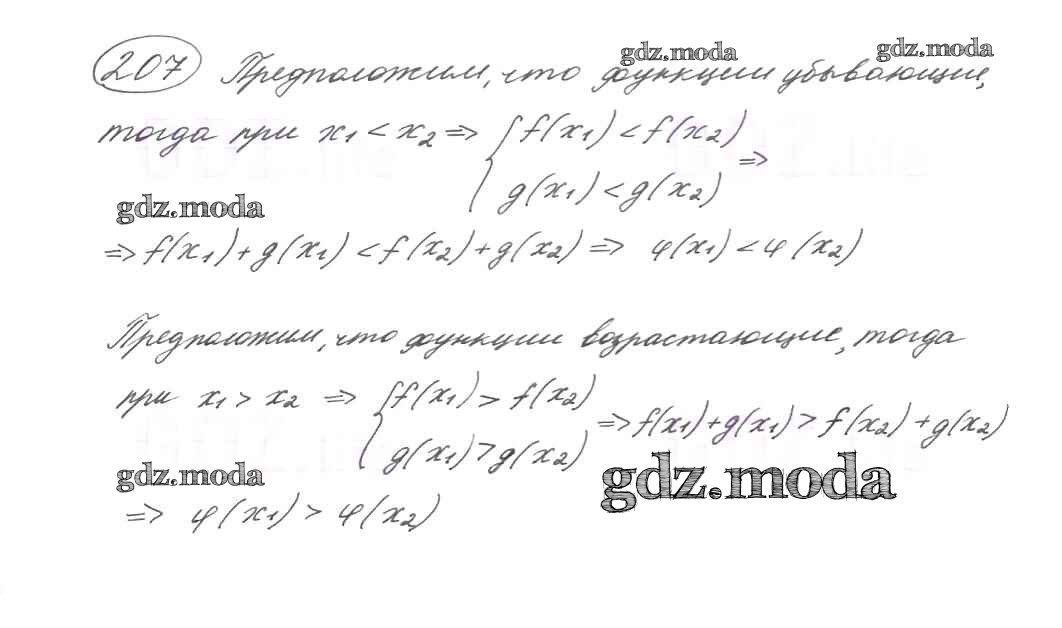 gdz.moda gdz.moda
207 Предположим, что функции убывающие,
тогда при x₁ < x₂ => { f(x₁) < f(x₂)
g(x₁) < g(x₂) =>
gdz.moda
=> f(x₁) + g(x₁) < f(x₂) + g(x₂) => φ(x₁) < φ(x₂)
Предположим, что функции возрастающие, тогда
при x₁ > x₂ => { f(x₁) > f(x₂)
g(x₁) > g(x₂) => f(x₁) + g(x₁) > f(x₂) + g(x₂)
gdz.moda gdz.moda
=> φ(x₁) > φ(x₂)